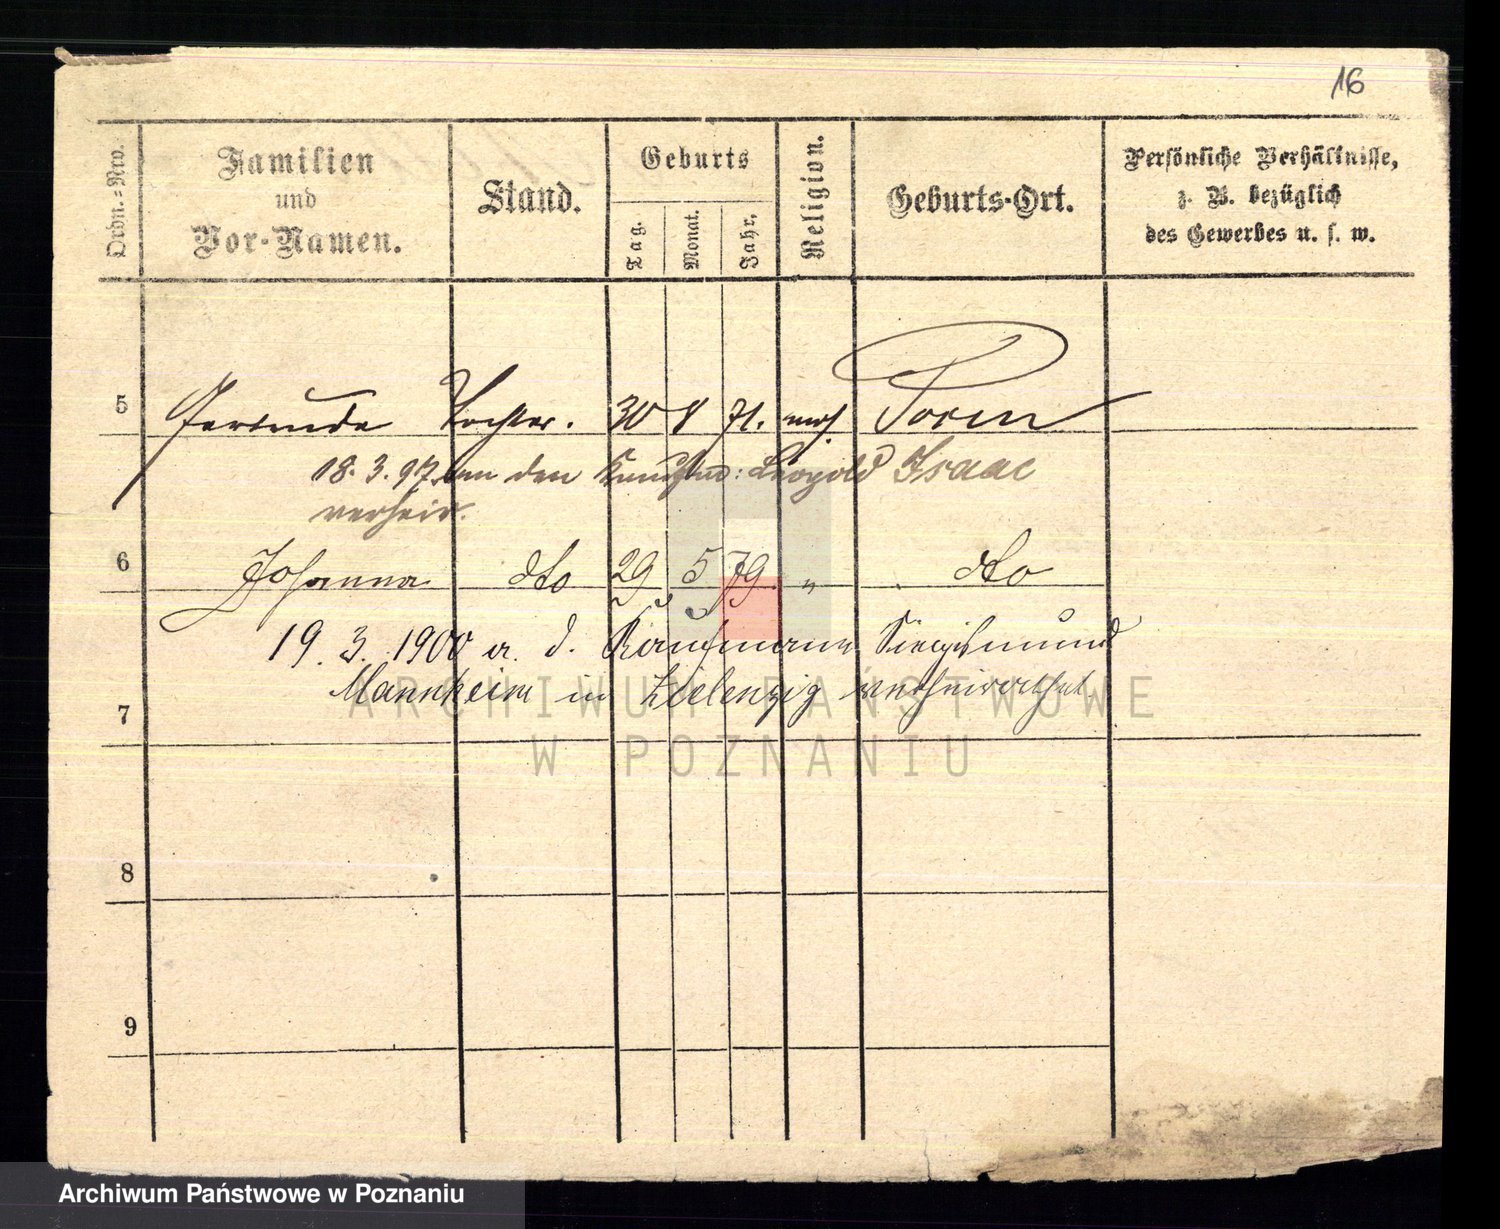 16
Ordn.=Nro.
Familien
und
Vor-Namen.
Stand.
Geburts
Tag.
Monat.
Jahr.
Religion.
Geburts-Ort.
Persönliche Verhältnisse,
z. B. bezüglich
des Gewerbes u. s. w.
5 Gertrude Tochter. 30 8 71. mos. Posen
18. 3. 97 an den Leopold Isaac
verheir.
6 Johanna dto 29 5 79 " dto
19. 3. 1900 a. d. Kaufmann Siegismund
Mannheim in Zielenzig verheirathet
7
8
9
ARCHIWUM PAŃSTWOWE
W POZNANIU
Archiwum Państwowe w Poznaniu